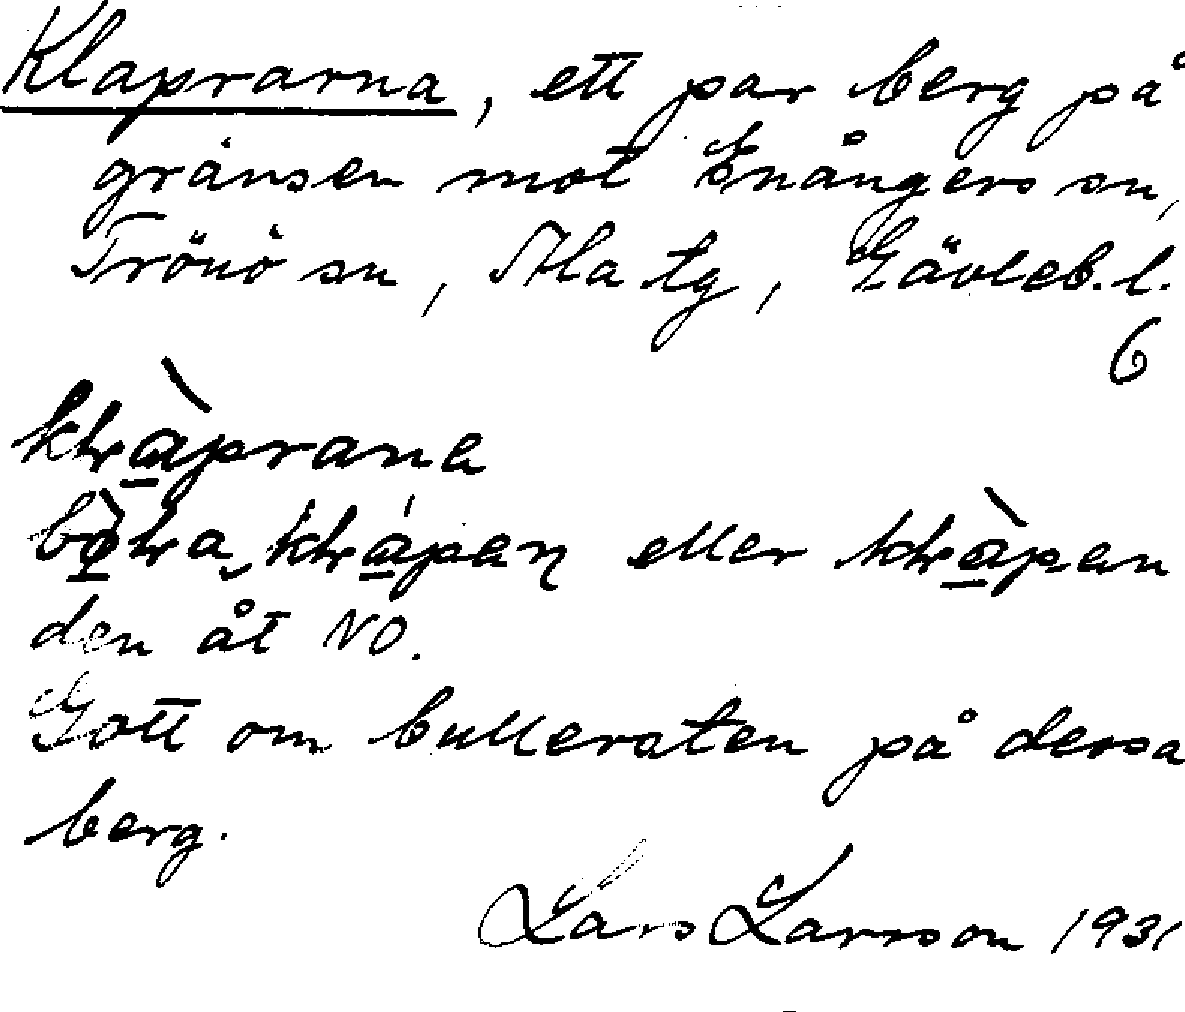 Klaprarna, ett par berg på
gränsen mot Enångers sn,
Trönö sn, Ala tg, Gävleb. l.
6
eller
den åt NO.
Gott om bullersten på dessa
berg.
Lars Larsson 1931